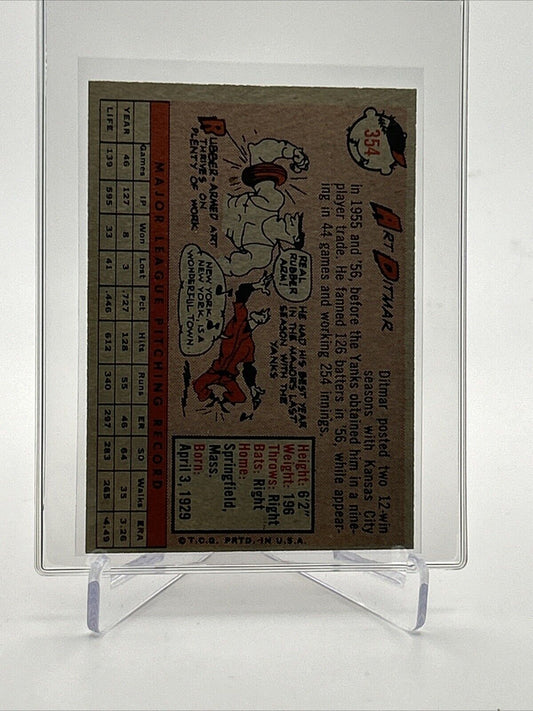 354
ART DITMAR
Ditmar posted two 12-win
seasons with Kansas City
in 1955 and '56, before the Yanks obtained him in a nine-
player trade. He fanned 126 batters in '56, while appear-
ing in 44 games and working 254 innings.
RUBBER-ARMED ART
THRIVES ON
PLENTY OF WORK.
REAL
RUBBER
ARM
HE HAD HIS BEST YEAR
IN THE MAJORS LAST
SEASON WITH THE
YANKS
NEW YORK,
NEW YORK, IS A
WONDERFUL TOWN
Height: 6'2"
Weight: 196
Throws: Right
Bats: Right
Home:
Springfield,
Mass.
Born:
April 3, 1929
MAJOR LEAGUE PITCHING RECORD
Games IP Won Lost Pct Hits Runs ER SO Walks ERA
YEAR 46 127 8 3 .727 128 55 46 64 35 3.26
LIFE 139 595 33 41 .446 612 340 297 283 265 4.49
© T.C.G. PRTD. IN U.S.A.